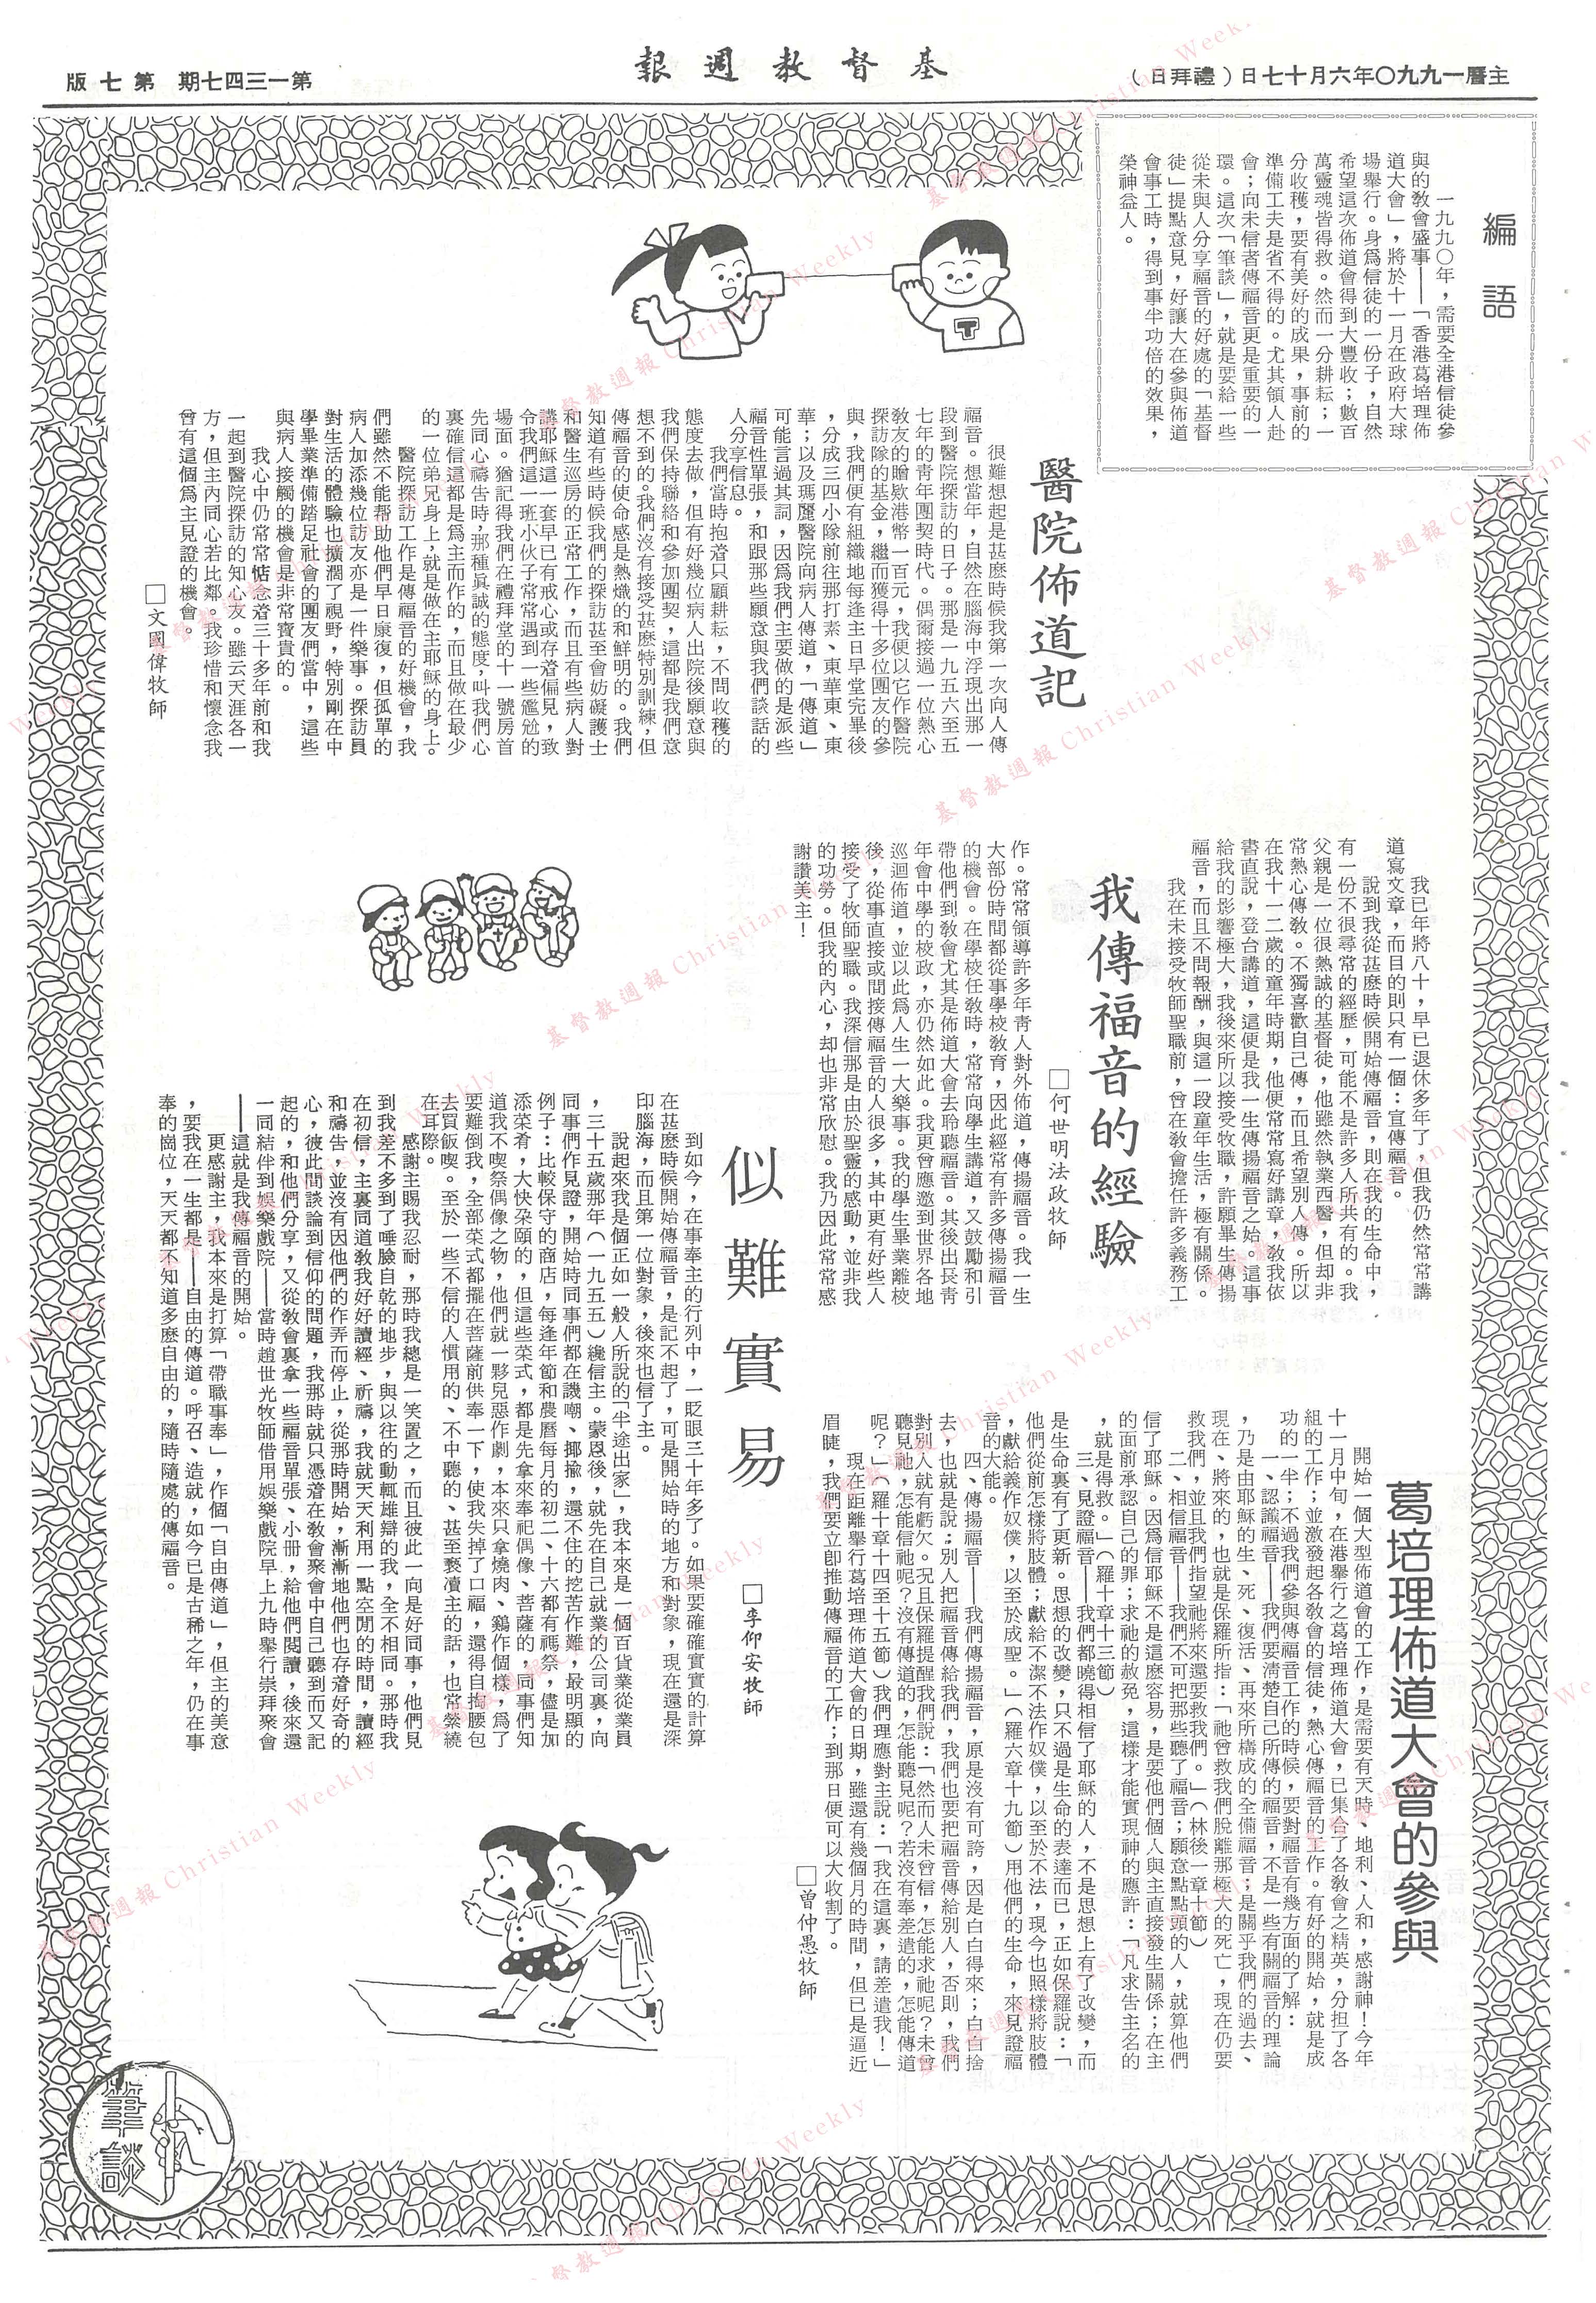 主曆一九九〇年六月十七日（禮拜日）
基督教週報
第一三四七期　第七版
編語
一九九〇年，需要全港信徒參
與的教會盛事——「香港葛培理佈
道大會」，將於十一月在政府大球
場舉行。身爲信徒的一份子，自然
希望這次佈道會得到大豐收；數百
萬靈魂皆得救。然而一分耕耘；一
分收穫，要有美好的成果，事前的
準備工夫是省不得的。尤其領人赴
會；向未信者傳福音更是重要的一
環。這次「筆談」，就是要給一些
從未與人分享福音的好處的「基督
徒」提點意見，好讓大在參與佈道
會事工時，得到事半功倍的效果，
榮神益人。
醫院佈道記
很難想起是甚麽時候我第一次向人傳
福音。想當年，自然在腦海中浮現出那一
段到醫院探訪的日子。那是一九五六至五
七年的靑年團契時代。偶爾接過一位熱心
敎友的贈欵港幣一百元，我便以它作醫院
探訪隊的基金，繼而獲得十多位團友的參
與，我們便有組織地每逢主日早堂完畢後
，分成三四小隊前往那打素、東華東、東
華；以及瑪麗醫院向病人傳道，「傳道」
可能言過其詞，因爲我們主要做的是派些
福音性單張，和跟那些願意與我們談話的
人分享信息。
我們當時抱着只顧耕耘，不問收穫的
態度去做，但有好幾位病人出院後願意與
我們保持聯絡和參加團契，這都是我們意
想不到的。我們沒有接受甚麽特別訓練，但
傳福音的使命感是熱熾的和鮮明的。我們
知道有些時候我們的探訪甚至會妨礙護士
和醫生巡房的正常工作，而且有些病人對
講耶穌這一套早已有戒心或存着偏見，致
令我們這一班小伙子常常遇到一些尷尬的
場面。猶記得我們在禮拜堂的十一號房首
先同心禱告時，那種眞誠的態度，叫我們心
裏確信這都是爲主而作的，而且做在最少
的一位弟兄身上，就是做在主耶穌的身上。
醫院探訪工作是傳福音的好機會，我
們雖然不能帮助他們早日康復，但孤單的
病人加添幾位訪友亦是一件樂事。探訪員
對生活的體驗也擴濶了視野，特別剛在中
學畢業準備踏足社會的團友們當中，這些
與病人接觸的機會是非常寶貴的。
我心中仍常常惦念着三十多年前和我
一起到醫院探訪的知心友。雖云天涯各一
方，但主內同心若比鄰。我珍惜和懷念我
曾有這個爲主見證的機會。
□文國偉牧師
我傳福音的經驗
□何世明法政牧師
我已年將八十，早已退休多年了，但我仍然常常講
道寫文章，而目的則只有一個：宣傳福音。
說到我從甚麽時候開始傳福音，則在我的生命中，
有一份不很尋常的經歷，可能不是許多人所共有的。我
父親是一位很熱誠的基督徒，他雖然執業西醫，但却非
常熱心傳敎。不獨喜歡自己傳，而且希望別人傳。所以
在我十一二歲的童年時期，他便常常寫好講章，敎我依
書直說，登台講道，這便是我一生傳揚福音之始。這事
給我的影響極大，我後來所以接受牧職，許願畢生傳揚
福音，而且不問報酬，與這一段童年生活，極有關係。
我在未接受牧師聖職前，曾在敎會擔任許多義務工
作。常常領導許多年靑人對外佈道，傳揚福音。我一生
大部份時間都從事學校敎育，因此經常有許多傳揚福音
的機會。在學校任敎時，常常向學生講道，又鼓勵和引
帶他們到敎會尤其是佈道大會去聆聽福音。其後出長靑
年會中學的校政，亦仍然如此。我更曾應邀到世界各地
巡迴佈道，並以此爲人生一大樂事。我的學生畢業離校
後，從事直接或間接傳福音的人很多，其中更有好些人
接受了牧師聖職。我深信那是由於聖靈的感動，並非我
的功勞。但我的內心，却也非常欣慰。我乃因此常常感
謝讚美主！
似難實易
□李仰安牧師
到如今，在事奉主的行列中，一眨眼三十年多了。如果要確確實實的計算
在甚麽時候開始傳福音，是記不起了，可是開始時的地方和對象，現在還是深
印腦海，而且第一位對象，後來也信了主。
說起來我是個正如一般人所說的「半途出家」，我本來是一個百貨業從業員
，三十五歲那年（一九五五）纔信主。蒙恩後，就先在自己就業的公司裏，向
同事們作見證，開始時同事們都在譏嘲、揶揄，還不住的挖苦作難，最明顯的
例子：比較保守的商店，每逢年節和農曆每月的初二、十六都有禡祭，儘是加
添菜肴，大快朶頤的，但這些菜式，都是先拿來奉祀偶像、菩薩的，同事們知
道我不喫祭偶像之物，他們就一夥兒惡作劇，本來只拿燒肉、鷄作個樣，爲了
要難倒我，全部菜式都擺在菩薩前供奉一下，使我失掉了口福，還得自掏腰包
去買飯喫。至於一些不信的人慣用的、不中聽的、甚至褻凟主的話，也常縈繞
在耳際。
感謝主賜我忍耐，那時我總是一笑置之，而且彼此一向是好同事，他們見
到我差不多到了唾臉自乾的地步，與以往的動輒雄辯的我，全不相同。那時我
在初信，主裏同道敎我好好讀經、祈禱，我就天天利用一點空閒的時間，讀經
和禱告，並沒有因他們的作弄而停止，從那時開始，漸漸地他們也存着好奇的
心，彼此間談論到信仰的問題，我那時就只憑着在敎會聚會中自己聽到而又記
起的，和他們分享，又從敎會裏拿一些福音單張、小冊，給他們閱讀，後來還
一同結伴到娛樂戲院——當時趙世光牧師借用娛樂戲院早上九時舉行崇拜聚會
——這就是我傳福音的開始。
更感謝主，我本來是打算「帶職事奉」，作個「自由傳道」，但主的美意
，要我在一生都是——自由的傳道。呼召、造就，如今已是古稀之年，仍在事
奉的崗位，天天都不知道多麽自由的，隨時隨處的傳福音。
葛培理佈道大會的參與
開始一個大型佈道會的工作，是需要有天時、地利、人和，感謝神！今年
十一月中旬，在港舉行之葛培理佈道大會，已集合了各敎會之精英，分担了各
組的工作；並激發起各敎會的信徒，熱心傳福音的工作。有好的開始，就是成
功的一半；不過我們參與傳福音工作的時候，要對福音有幾方面的了解：
一、認識福音——我們要淸楚自己所傳的福音，不是一些有關福音的理論
，乃是由耶穌的生、死、復活、再來所構成的全備福音；是關乎我們的過去、
現在、將來的，也就是保羅所指：「祂曾救我們脫離那極大的死亡，現在仍要
救我們，並且我們指望祂將來還要救我們。」（林後一章十節）
二、相信福音——我們不可把那些聽了福音；願意點點頭的人，就算他們
信了耶穌。因爲信耶穌不是這麽容易，是要他們個人與主直接發生關係；在主
的面前承認自己的罪；求祂的赦免，這樣才能實現神的應許：「凡求告主名的
，就是得救。」（羅十章十三節）
三、見證福音——我們都曉得相信了耶穌的人，不是思想上有了改變，而
是生命裏有了更新。思想的改變，只不過是生命的表達而已，正如保羅說：「
他們從前怎樣將肢體；獻給不潔不法作奴僕，以至於不法，現今也照樣將肢體
，獻給義作奴僕，以至於成聖。」（羅六章十九節）用他們的生命，來見證福
音的大能。
四、傳揚福音——我們傳揚福音，原是沒有可誇，因是白白得來；白白捨
去，也就是說；別人把福音傳給我們，我們也要把福音傳給別人，否則，我們
對別人就有虧欠。況且保羅提醒我們說：「然而人未曾信，怎能求祂呢？未曾
聽見祂，怎能信祂呢？沒有傳道的，怎能聽見呢？若沒有奉差遣的，怎能傳道
呢？」（羅十章十四至十五節）我們理應對主說：「我在這裏，請差遣我！」
現在距離舉行葛培理佈道大會的日期，雖還有幾個月的時間，但已是逼近
眉睫，我們要立卽推動傳福音的工作；到那日便可以大收割了。
□曾仲愚牧師
筆談
基督教週報 Christian Weekly